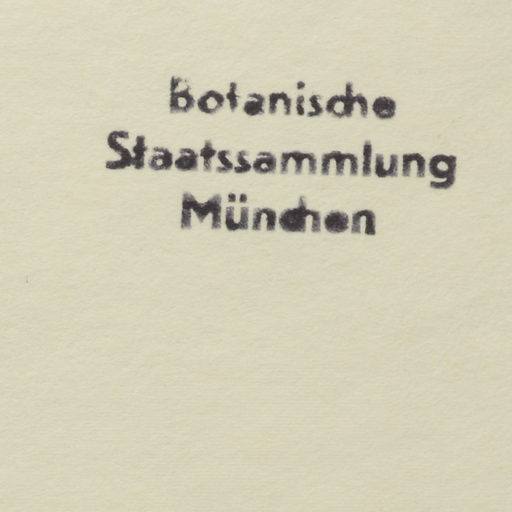 Botanische
Staatssammlung
München